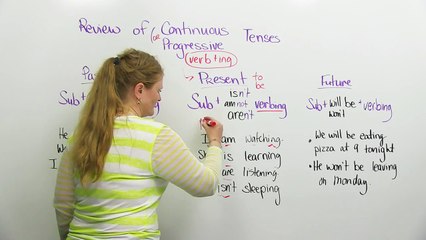 Review of (or Continuous Tenses
Progressive
verb+ing
→ Present to be
Sub +
isn't
am not
aren't
verbing
am watching.
is learning
are listening
isn't sleeping
Pa
Sub+
He
I
Future
Sub+ will be + verbing
won't
• We will be eating
pizza at 9 tonight
• He won't be leaving
on Monday.